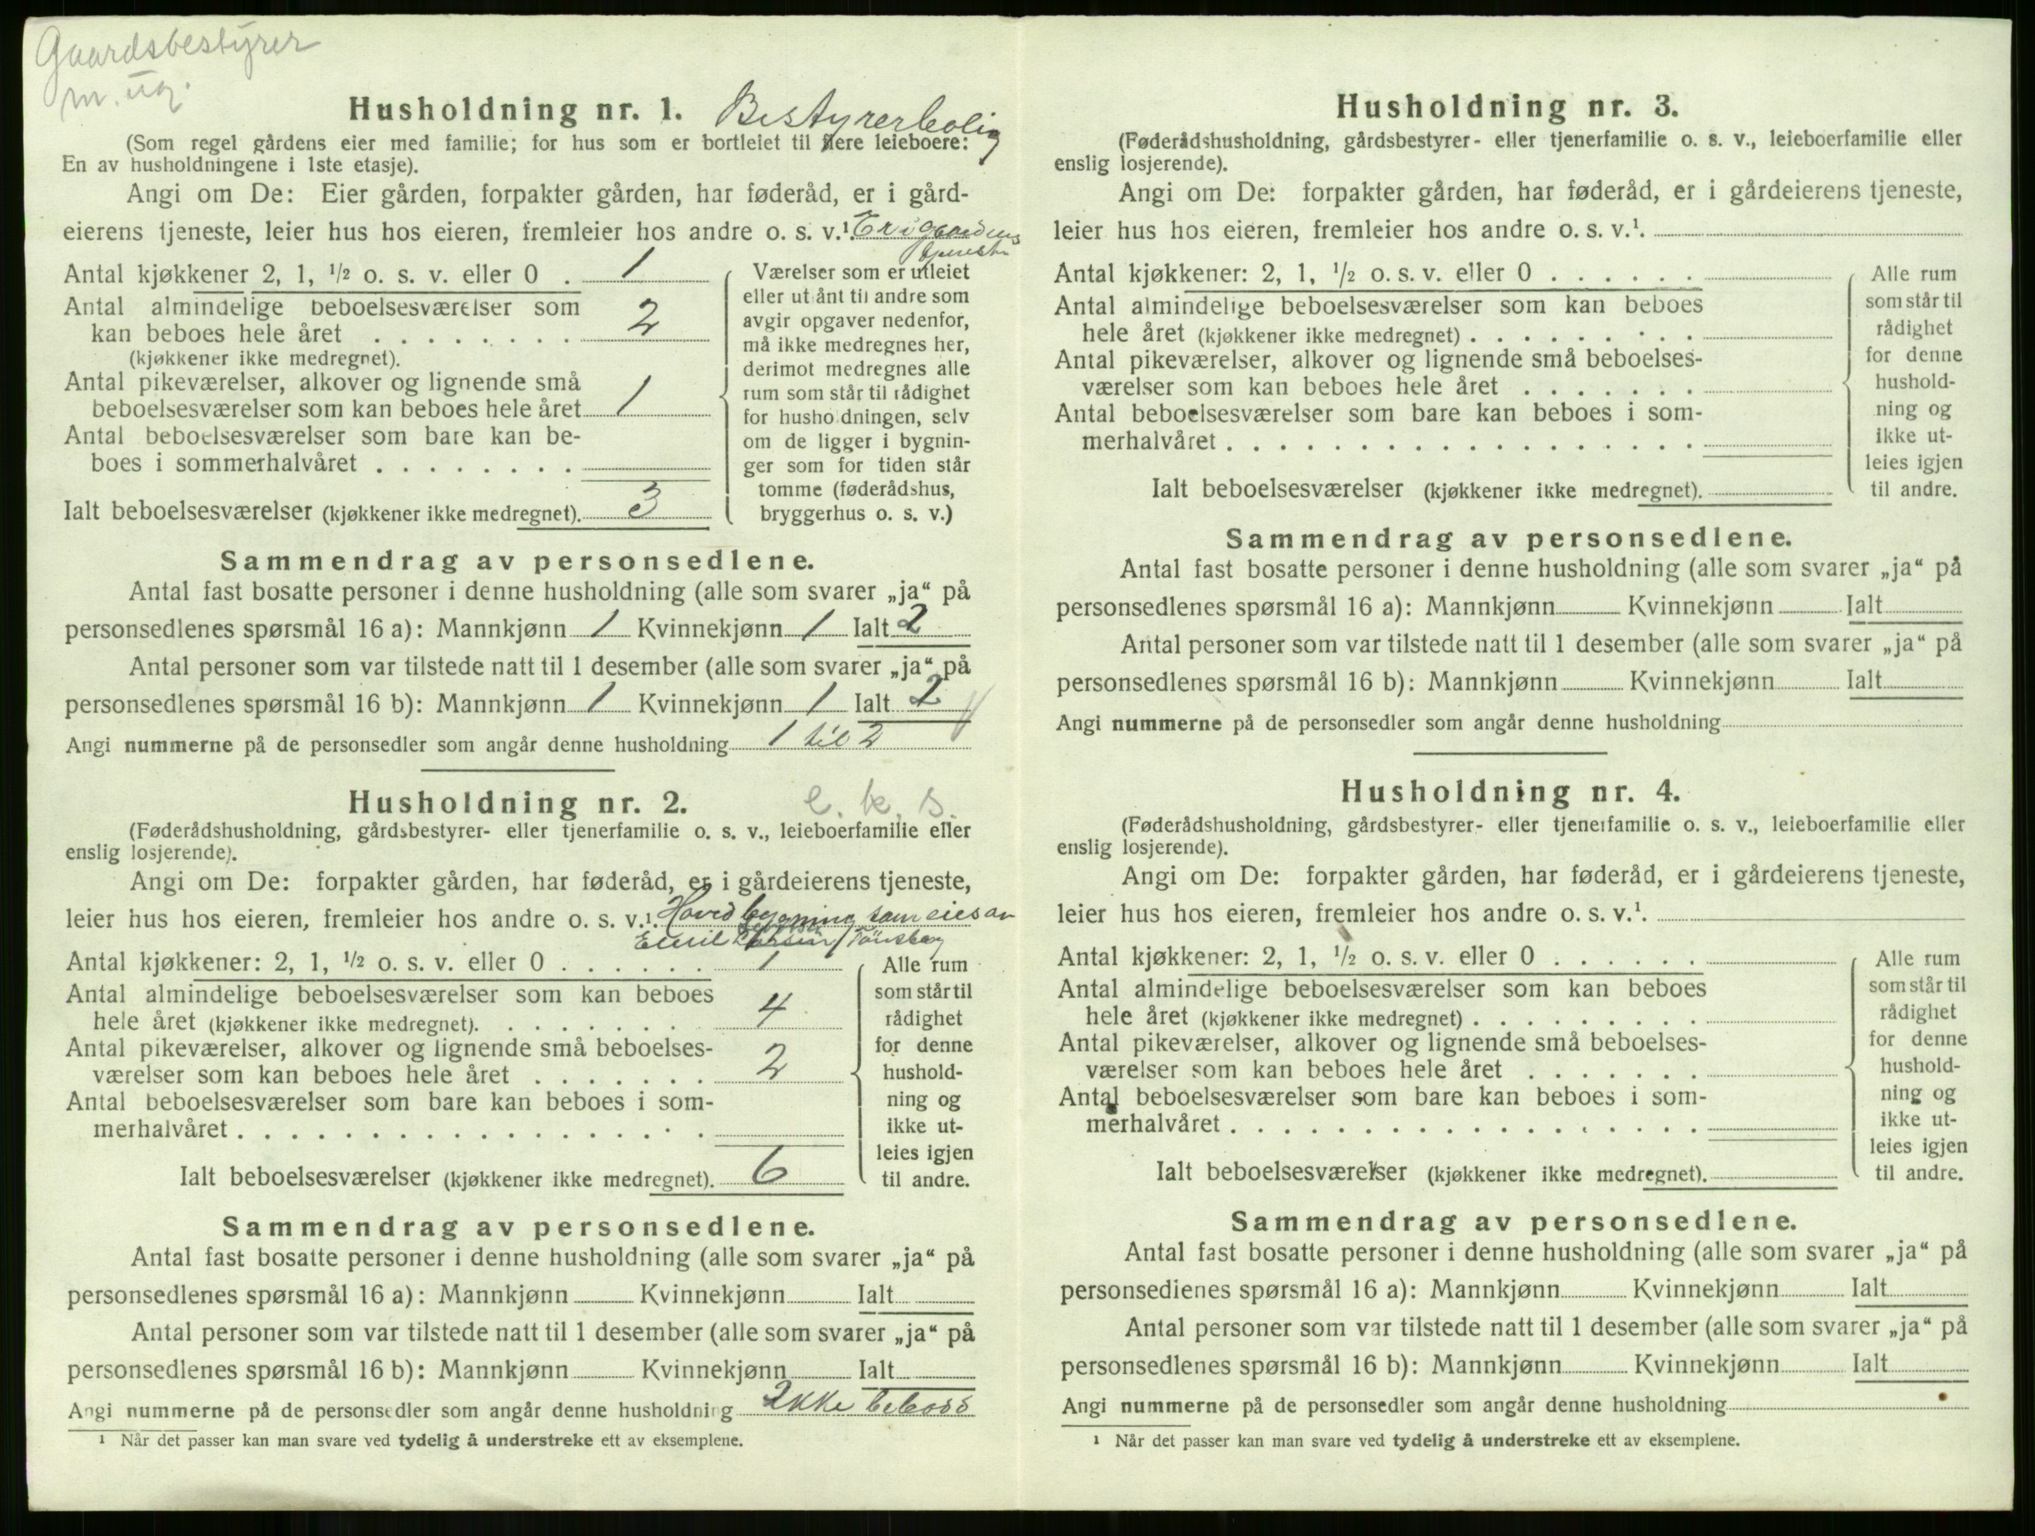 Gaardsbestyrer
m. ug.
Husholdning nr. 1. Bestyrerbolig
(Som regel gårdens eier med familie; for hus som er bortleiet til flere leieboere:
En av husholdningene i 1ste etasje).
Angi om De: Eier gården, forpakter gården, har føderåd, er i gård-
eierens tjeneste, leier hus hos eieren, fremleier hos andre o. s. v.¹ Er i gaardens
tjeneste
Antal kjøkkener 2, 1, ½ o. s. v. eller 0 . 1
Antal almindelige beboelsesværelser som
kan beboes hele året . . . . . . . . 2
(kjøkkener ikke medregnet).
Antal pikeværelser, alkover og lignende små
beboelsesværelser som kan beboes hele året 1
Antal beboelsesværelser som bare kan be-
boes i sommerhalvåret . . . . . . . .
Ialt beboelsesværelser (kjøkkener ikke medregnet). 3
Værelser som er utleiet
eller utlånt til andre som
avgir opgaver nedenfor,
må ikke medregnes her,
derimot medregnes alle
rum som står til rådighet
for husholdningen, selv
om de ligger i bygnin-
ger som for tiden står
tomme (føderådshus,
bryggerhus o. s. v.)
Sammendrag av personsedlene.
Antal fast bosatte personer i denne husholdning (alle som svarer „ja“ på
personsedlenes spørsmål 16 a): Mannkjønn 1 Kvinnekjønn 1 Ialt 2
Antal personer som var tilstede natt til 1 desember (alle som svarer „ja“ på
personsedlenes spørsmål 16 b): Mannkjønn 1 Kvinnekjønn 1 Ialt 2
Angi nummerne på de personsedler som angår denne husholdning 1 til 2
Husholdning nr. 2. e. k. s.
(Føderådshusholdning, gårdsbestyrer- eller tjenerfamilie o. s. v., leieboerfamilie eller
enslig losjerende).
Angi om De: forpakter gården, har føderåd, er i gårdeierens tjeneste,
leier hus hos eieren, fremleier hos andre o. s. v.¹. Hovedbygning som eies av
Emil / Tönsberg
Antal kjøkkener: 2, 1, ½ o. s. v. eller 0 . . . . . . 1
Antal almindelige beboelsesværelser som kan beboes
hele året (kjøkkener ikke medregnet). . . . . . . . . 4
Antal pikeværelser, alkover og lignende små beboelses-
værelser som kan beboes hele året . . . . . . . 2
Antal beboelsesværelser som bare kan beboes i som-
merhalvåret . . . . . . . . . . . . . . . . . .
Ialt beboelsesværelser (kjøkkener ikke medregnet). 6
Alle rum
som står til
rådighet
for denne
hushold-
ning og
ikke ut-
leies igjen
til andre.
Sammendrag av personsedlene.
Antal fast bosatte personer i denne husholdning (alle som svarer „ja“ på
personsedlenes spørsmål 16 a): Mannkjønn Kvinnekjønn Ialt
Antal personer som var tilstede natt til 1 desember (alle som svarer „ja“ på
personsedlenes spørsmål 16 b): Mannkjønn Kvinnekjønn Ialt
Angi nummerne på de personsedler som angår denne husholdning Ikke beboes
¹ Når det passer kan man svare ved tydelig å understreke ett av eksemplene.
Husholdning nr. 3.
(Føderådshusholdning, gårdsbestyrer- eller tjenerfamilie o. s. v., leieboerfamilie eller
enslig losjerende).
Angi om De: forpakter gården, har føderåd, er i gårdeierens tjeneste,
leier hus hos eieren, fremleier hos andre o. s. v.¹.
Antal kjøkkener: 2, 1, ½ o. s. v. eller 0 . . . . . .
Antal almindelige beboelsesværelser som kan beboes
hele året (kjøkkener ikke medregnet) . . . . . . . . .
Antal pikeværelser, alkover og lignende små beboelses-
værelser som kan beboes hele året . . . . . . .
Antal beboelsesværelser som bare kan beboes i som-
merhalvåret . . . . . . . . . . . . . . . . . .
Ialt beboelsesværelser (kjøkkener ikke medregnet).
Alle rum
som står til
rådighet
for denne
hushold-
ning og
ikke ut-
leies igjen
til andre.
Sammendrag av personsedlene.
Antal fast bosatte personer i denne husholdning (alle som svarer „ja“ på
personsedlenes spørsmål 16 a): Mannkjønn Kvinnekjønn Ialt
Antal personer som var tilstede natt til 1 desember (alle som svarer „ja“ på
personsedlenes spørsmål 16 b): Mannkjønn Kvinnekjønn Ialt
Angi nummerne på de personsedler som angår denne husholdning
Husholdning nr. 4.
(Føderådshusholdning, gårdsbestyrer- eller tjenerfamilie o. s. v., leieboerfamilie eller
enslig losjerende).
Angi om De: forpakter gården, har føderåd, er i gårdeierens tjeneste,
leier hus hos eieren, fremleier hos andre o. s. v.¹.
Antal kjøkkener: 2, 1, ½ o. s. v. eller 0 . . . . . .
Antal almindelige beboelsesværelser som kan beboes
hele året (kjøkkener ikke medregnet) . . . . . . . . .
Antal pikeværelser, alkover og lignende små beboelses-
værelser som kan beboes hele året . . . . . . .
Antal beboelsesværelser som bare kan beboes i som-
merhalvåret . . . . . . . . . . . . . . . . . .
Ialt beboelsesværelser (kjøkkener ikke medregnet).
Alle rum
som står til
rådighet
for denne
hushold-
ning og
ikke ut-
leies igjen
til andre.
Sammendrag av personsedlene.
Antal fast bosatte personer i denne husholdning (alle som svarer „ja“ på
personsedlenes spørsmål 16 a): Mannkjønn Kvinnekjønn Ialt
Antal personer som var tilstede natt til 1 desember (alle som svarer „ja“ på
personsedlenes spørsmål 16 b): Mannkjønn Kvinnekjønn Ialt
Angi nummerne på de personsedler som angår denne husholdning
¹ Når det passer kan man svare ved tydelig å understreke ett av eksemplene.